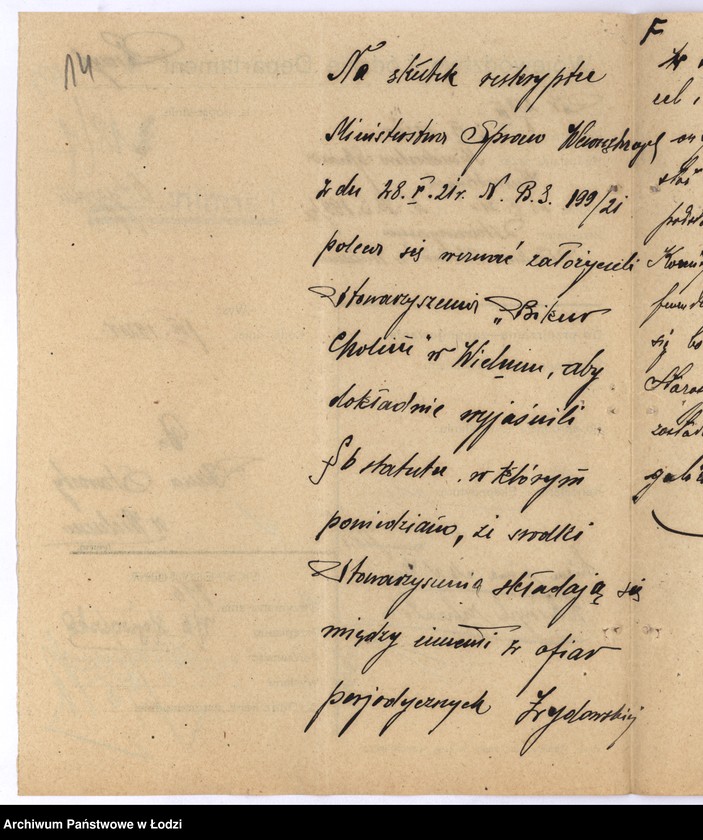 14
Na skutek reskryptu
Ministerstwa Spraw Wewnętrznych
z dn 28. V. 21 r. N. B. S. 199/21
poleca się wezwać założycieli
Stowarzyszenia „Bikur
Cholim" w Wieluniu, aby
dokładnie wyjaśnili
§ 6 statutu. w którym
powiedziano, że środki
Stowarzyszenia składają się
między innemi z ofiar
perjodycznych Żydowskiej
F
się
Archiwum Państwowe w Łodzi